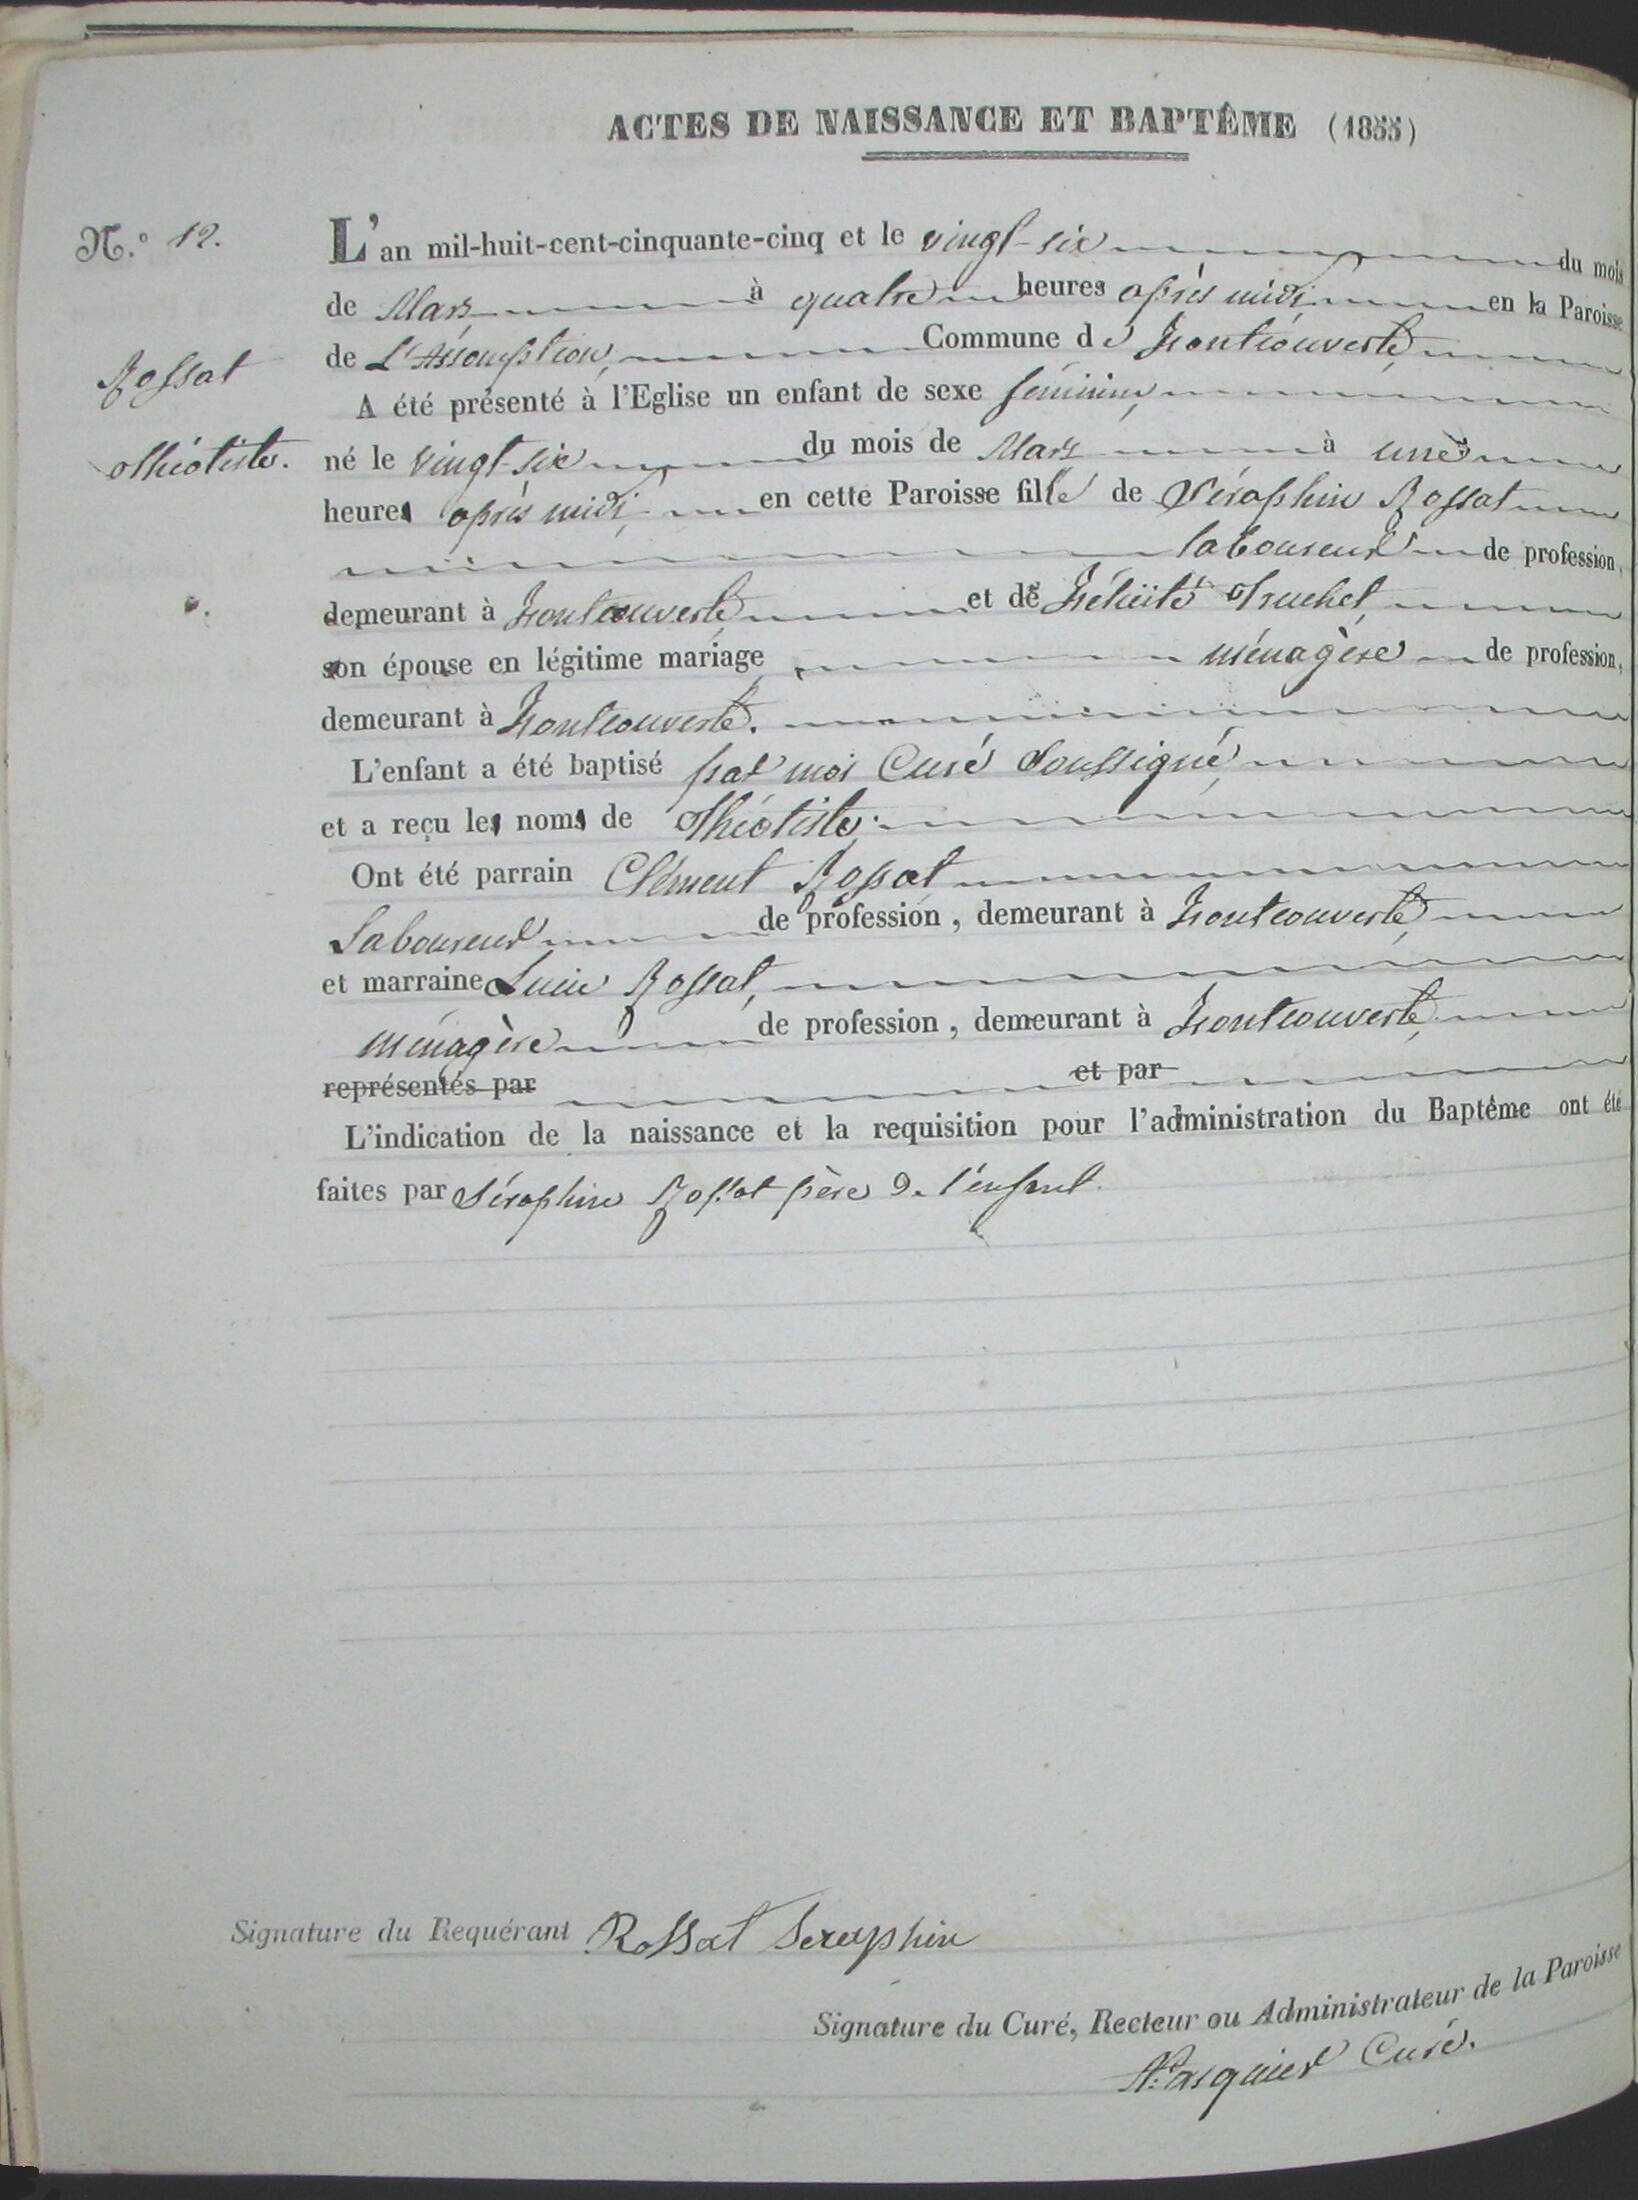 ACTES DE NAISSANCE ET BAPTÊME (1855)
N.º 12.
L'an mil-huit-cent-cinquante-cinq et le vingt-six du mois
de Mars à quatre heures après midi en la Paroisse
de L'Assomption, Commune de Fontcouverte
Rossat
A été présenté à l'Eglise un enfant de sexe féminin,
Théotiste.
né le vingt-six du mois de Mars à une
heure après midi, en cette Paroisse fille de Séraphin Rossat
laboureur de profession,
demeurant à Fontcouverte et de Félicité Truchet
son épouse en légitime mariage, ménagère de profession,
demeurant à Fontcouverte.
L'enfant a été baptisé par moi Curé soussigné
et a reçu le nom de Théotiste.
Ont été parrain Clément Rossat
Laboureur de profession, demeurant à Fontcouverte
et marraine Lucie Rossat,
ménagère de profession, demeurant à Fontcouverte,
représentés par et par
L'indication de la naissance et la requisition pour l'administration du Baptême ont été
faites par Séraphin Rossat père de l'enfant.
Signature du Requérant Rossat Seraphin
Signature du Curé, Recteur ou Administrateur de la Paroisse
Pasquier Curé.